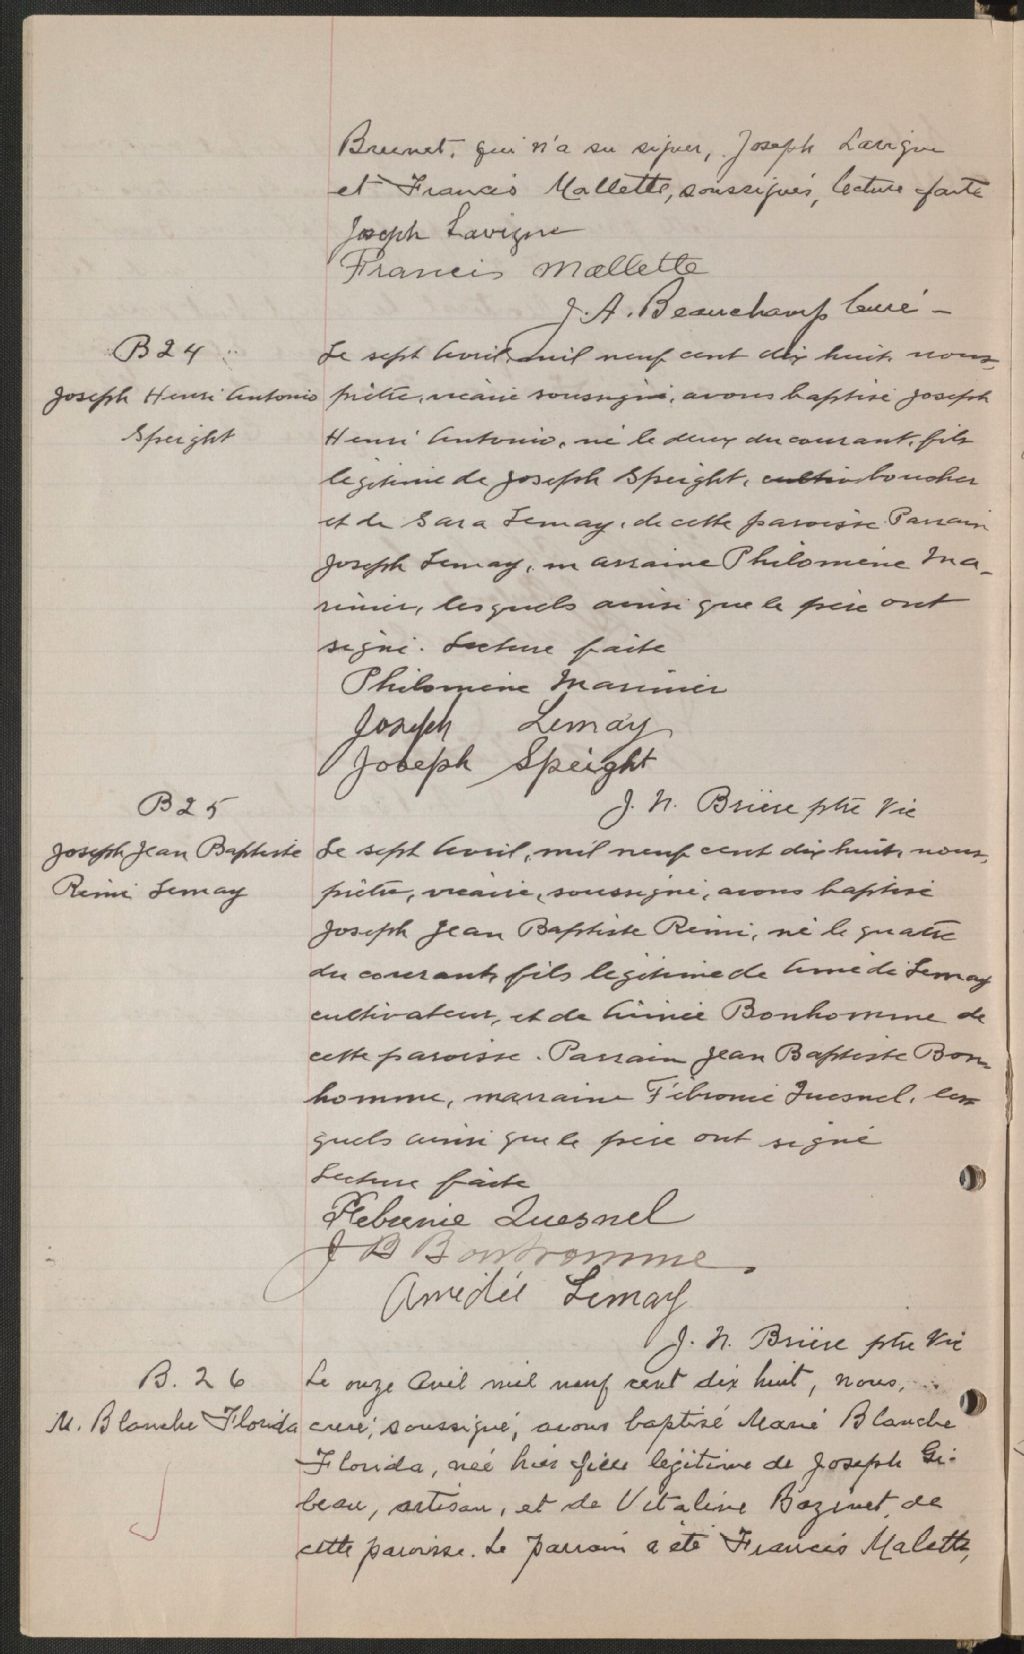 Brunet, qui n'a su signer, Joseph Lavigne
et Francis Mallette, soussignés, lecture faite
Joseph Lavigne
Francis Mallette
J. A. Beauchamp Curé -
B 24
Joseph Henri Antonio
Speight
Le sept Avril, mil neuf cent dix huit, nous,
prêtre, vicaire soussigné, avons baptisé Joseph
Henri Antonio, né le deux du courant, fils
légitime de Joseph Speight, boucher
et de Sara Lemay, de cette paroisse. Parrain
Joseph Lemay, marraine Philomène Ma-
rinier, lesquels ainsi que le père ont
signé. Lecture faite
Philomène Marinier
Joseph Lemay
Joseph Speight
J. N. Brière ptre Vic
B 25
Joseph Jean Baptiste
Rémi Lemay
Le sept Avril, mil neuf cent dix huit, nous,
prêtre, vicaire, soussigné, avons baptisé
Joseph Jean Baptiste Rémi, né le quatre
du courant, fils légitime de Amédé Lemay
cultivateur, et de Aimée Bonhomme de
cette paroisse. Parrain Jean Baptiste Bon-
homme, marraine Fébronie Quesnel, les-
quels ainsi que le père ont signé
Lecture faite
Febronie Quesnel
J B Bonhomme
Amédée Lemay
J. N. Brière ptre Vic
B. 26
M. Blanche Florida
Le onze Avril mil neuf cent dix huit, nous,
curé, soussigné, avons baptisé Marie Blanche
Florida, née hier fille légitime de Joseph Gi-
beau, artisan, et de Vitaline Bazinet, de
cette paroisse. Le parrain a été Francis Malette,